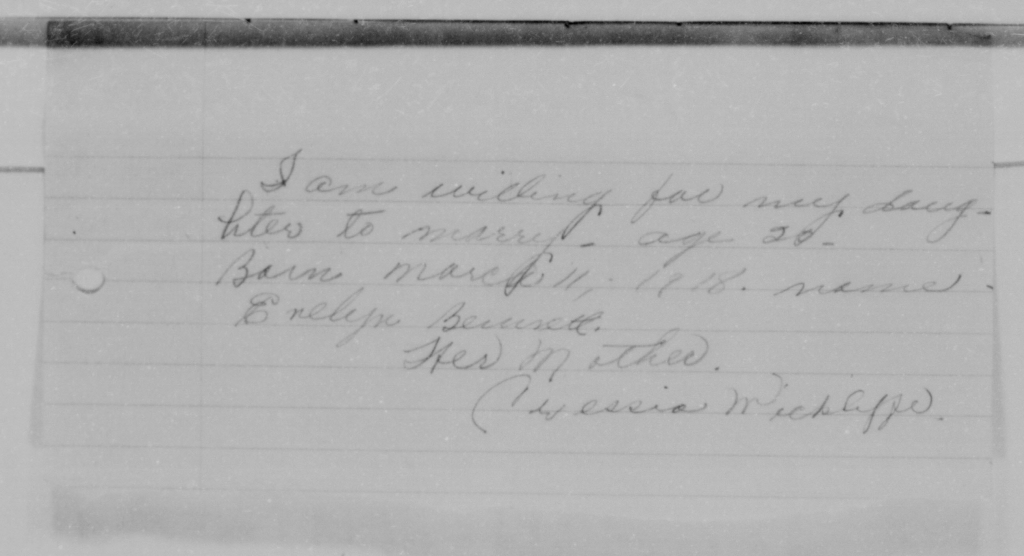 I am willing for my daug-
hter to marry - age 20 -
Born March 11, 1918. name -
Evelyn Bennett.
Her Mother.
Wickliffe.